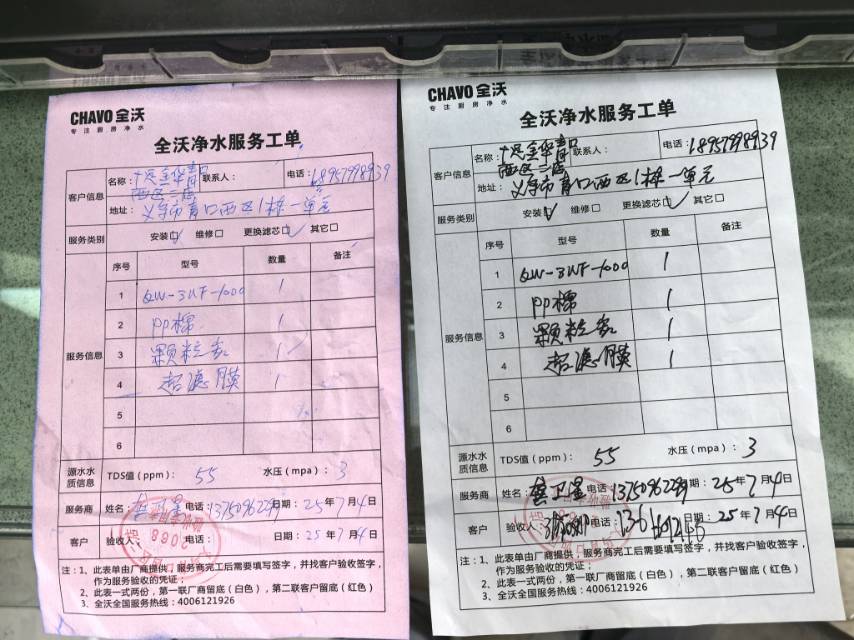 CHAVO 全沃
专注厨房净水
全沃净水服务工单
客户信息
名称：金华青口 联系人： 电话：18957998939
西区二店
地址：义乌市青口西区1栋一单元
服务类别 安装☑ 维修□ 更换滤芯☑ 其它□
服务信息
序号 型号 数量 备注
1 QW-3UF-1000 1
2 PP棉 1
3 颗粒炭 1
4 超滤膜 1
5
6
源水水质信息 TDS值（ppm）：55 水压（mpa）：3
服务商 姓名： 电话：13750962299 日期：25年7月4日
客户 验收人： 电话： 日期：25年7月4日
注：1、此表单由厂商提供，服务商完工后需要填写签字，并找客户验收签字，
作为服务验收的凭证；
2、此表一式两份，第一联厂商留底（白色），第二联客户留底（红色）
3、全沃全国服务热线：4006121926
CHAVO 全沃
专注厨房净水
全沃净水服务工单
客户信息
名称：金华青口 联系人： 电话：18957998939
西区二店
地址：义乌市青口西区1栋一单元
服务类别 安装☑ 维修□ 更换滤芯☑ 其它□
服务信息
序号 型号 数量 备注
1 QW-3UF-1000 1
2 PP棉 1
3 颗粒炭 1
4 超滤膜 1
5
6
源水水质信息 TDS值（ppm）：55 水压（mpa）：3
服务商 姓名： 电话：13750962299 日期：25年7月4日
客户 验收人： 电话： 日期：25年7月4日
注：1、此表单由厂商提供，服务商完工后需要填写签字，并找客户验收签字，
作为服务验收的凭证；
2、此表一式两份，第一联厂商留底（白色），第二联客户留底（红色）
3、全沃全国服务热线：4006121926